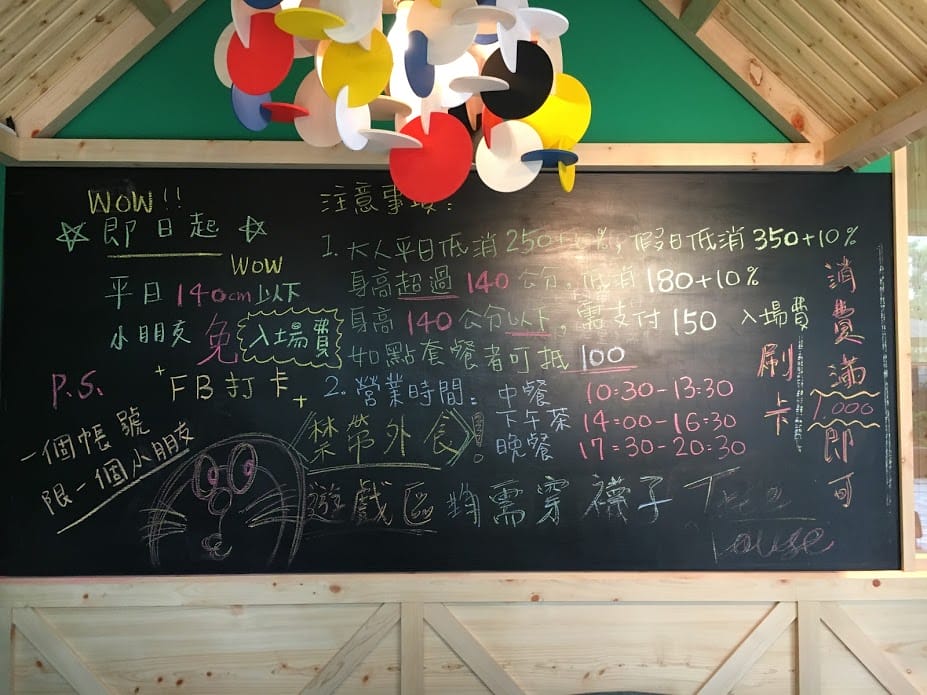 WOW!!
☆ 即日起 ☆
WOW
平日140cm以下
小朋友 免 入場費
+ FB打卡 +
P.S.
一個帳號
限一個小朋友
注意事項:
1. 大人平日低消250+10%, 假日低消350+10%
身高超過140公分, 低消180+10%
身高140公分以下, 需支付150 入場費
如點套餐者可抵100
2. 營業時間: 中餐 10:30-13:30
下午茶 14:00-16:30
晚餐 17:30-20:30
《禁帶外食》!!
遊戲區 均需穿襪子
Tree
House
消費滿1,000即可
刷卡